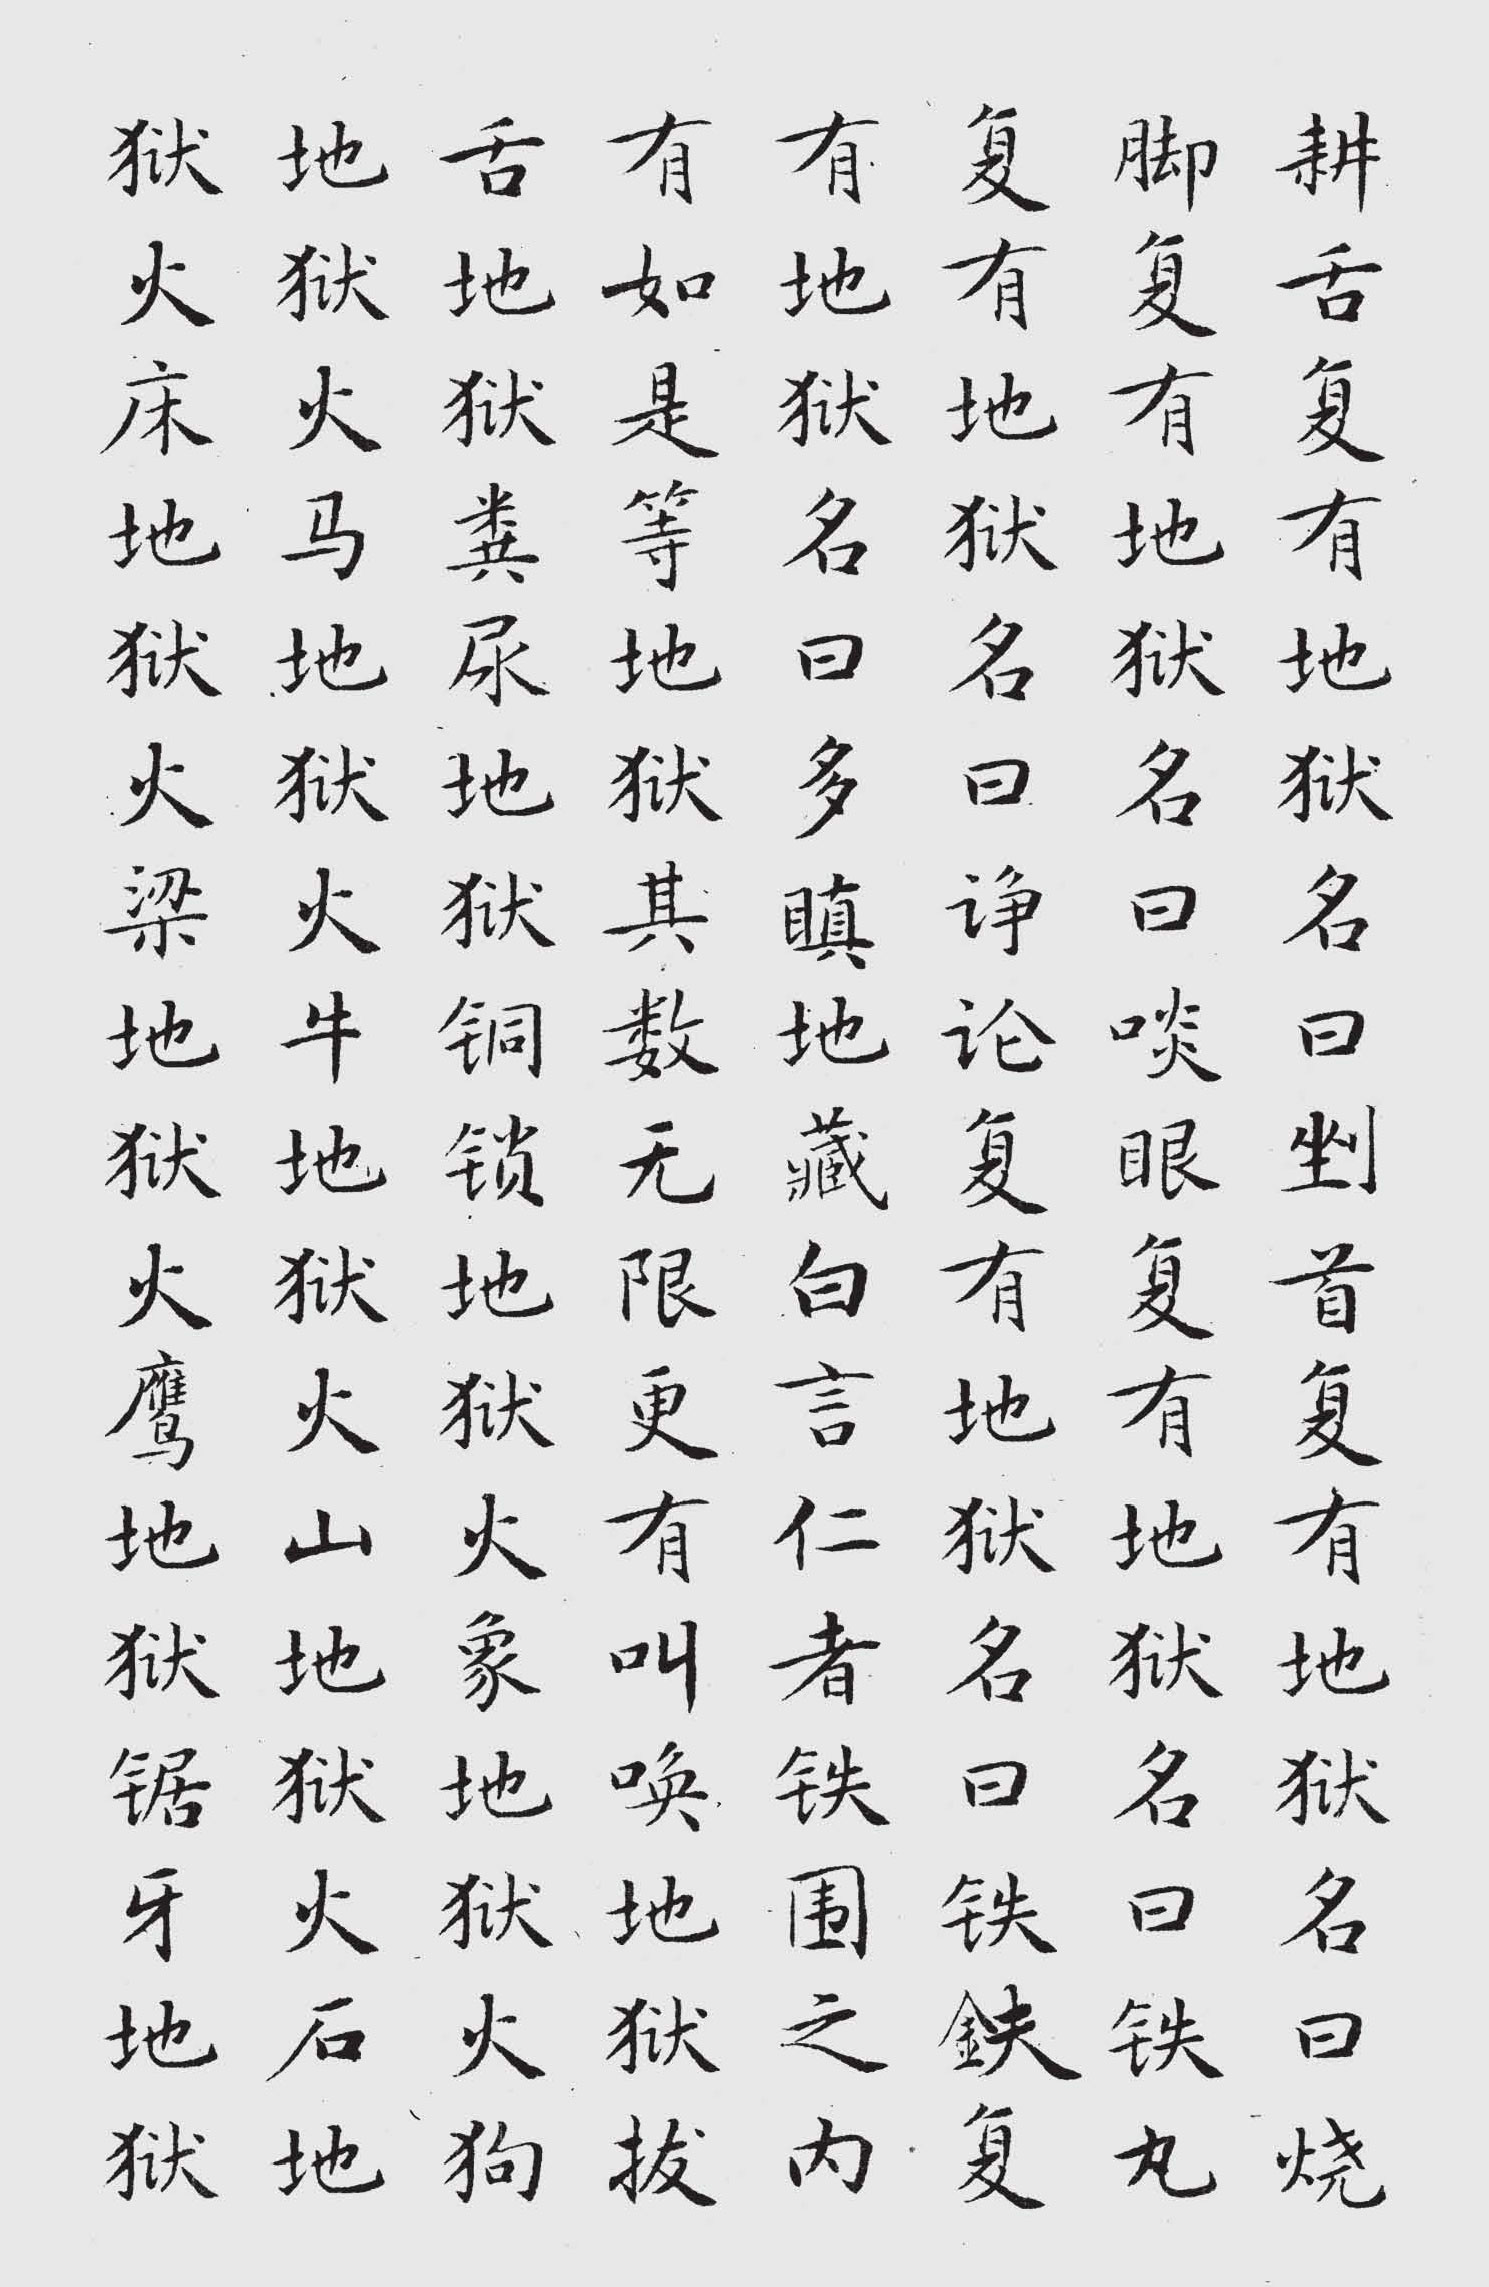 耕舌复有地狱名曰剉首复有地狱名曰烧
脚复有地狱名曰啖眼复有地狱名曰铁丸
复有地狱名曰诤论复有地狱名曰铁鈇复
有地狱名曰多瞋地藏白言仁者铁围之内
有如是等地狱其数无限更有叫唤地狱拔
舌地狱粪尿地狱铜锁地狱火象地狱火狗
地狱火马地狱火牛地狱火山地狱火石地
狱火床地狱火梁地狱火鹰地狱锯牙地狱